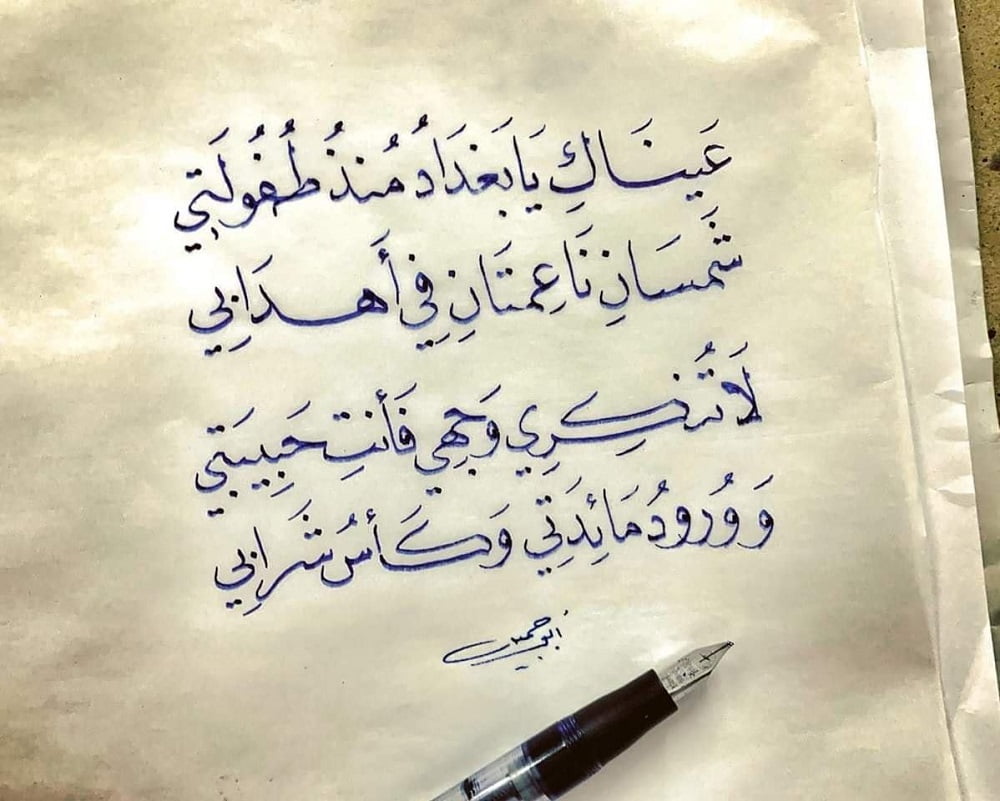 عَينَاكِ يَا بَغدَادُ مُنذُ طُفُولَتِي
شَمسَانِ نَاعِمَتَانِ فِي أَهدَابِي
لَا تُنكِرِي وَجهِي فَأَنتِ حَبِيبَتِي
وَوُرُودُ مَائِدَتِي وَكَأسُ شَرَابِي